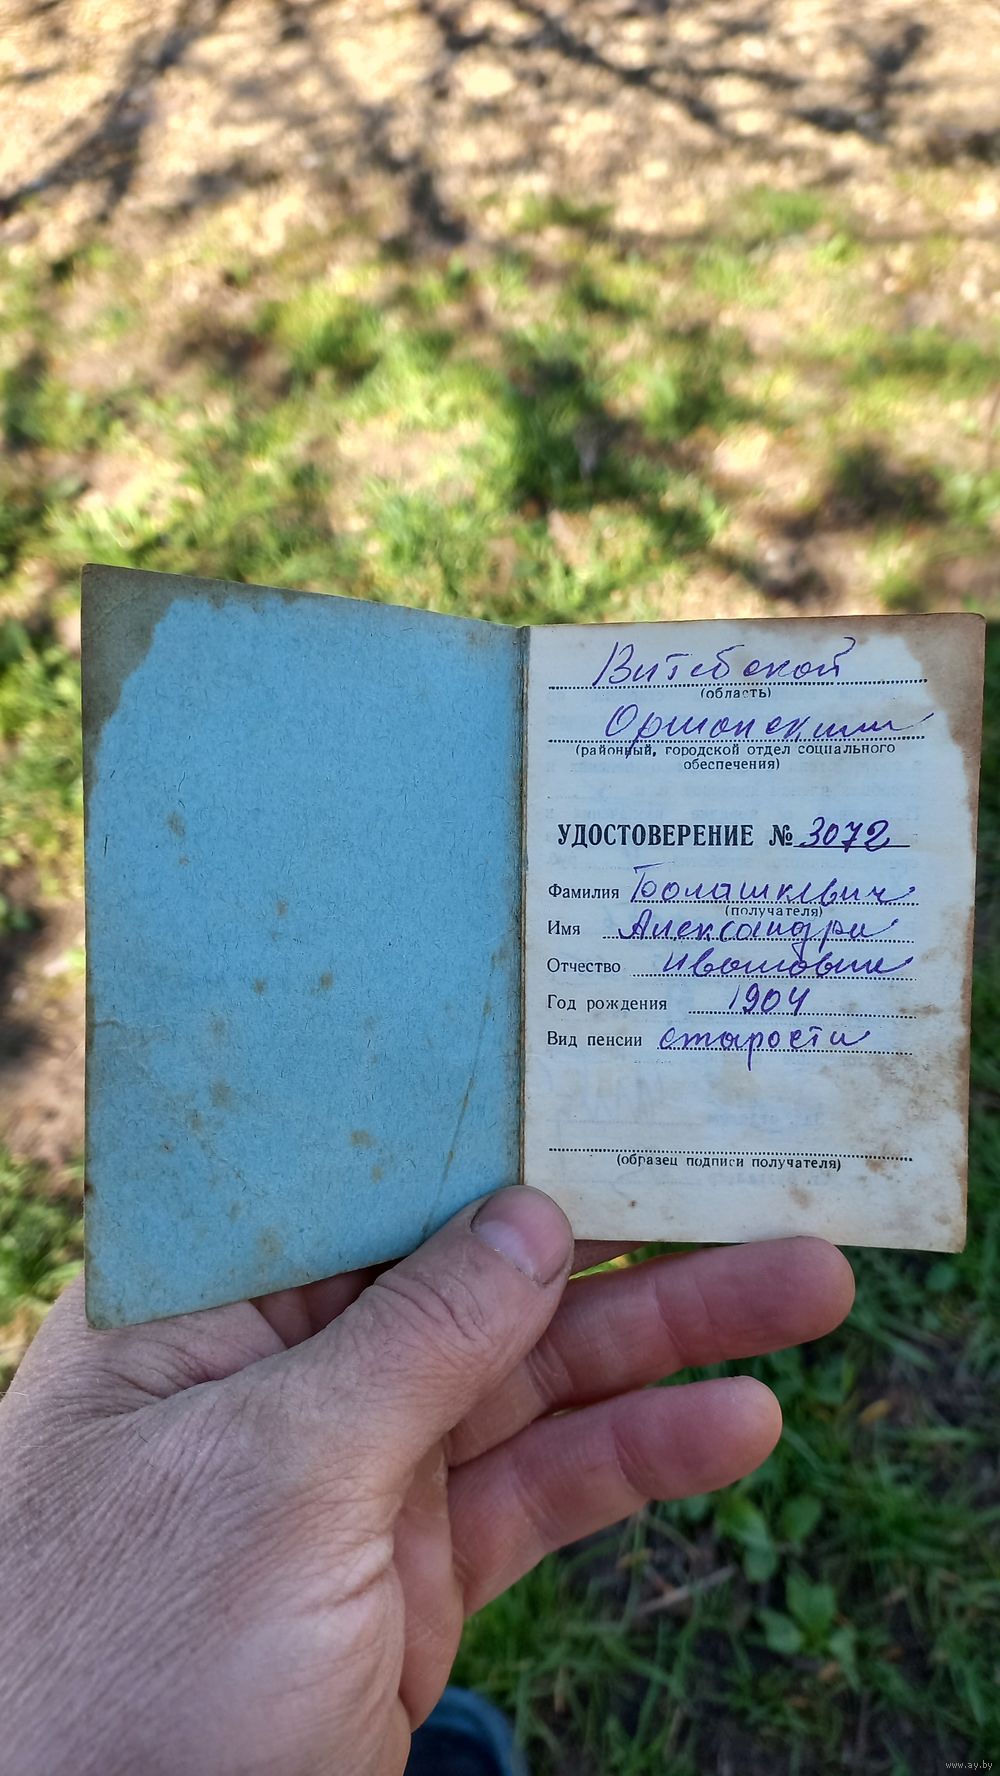 Витебской
(область)
Оршанским
(районный, городской отдел социального
обеспечения)
УДОСТОВЕРЕНИЕ № 3072
Фамилия
(получателя)
Имя Александра
Отчество Ивановна
Год рождения 1904
Вид пенсии старости
(образец подписи получателя)
www.ay.by